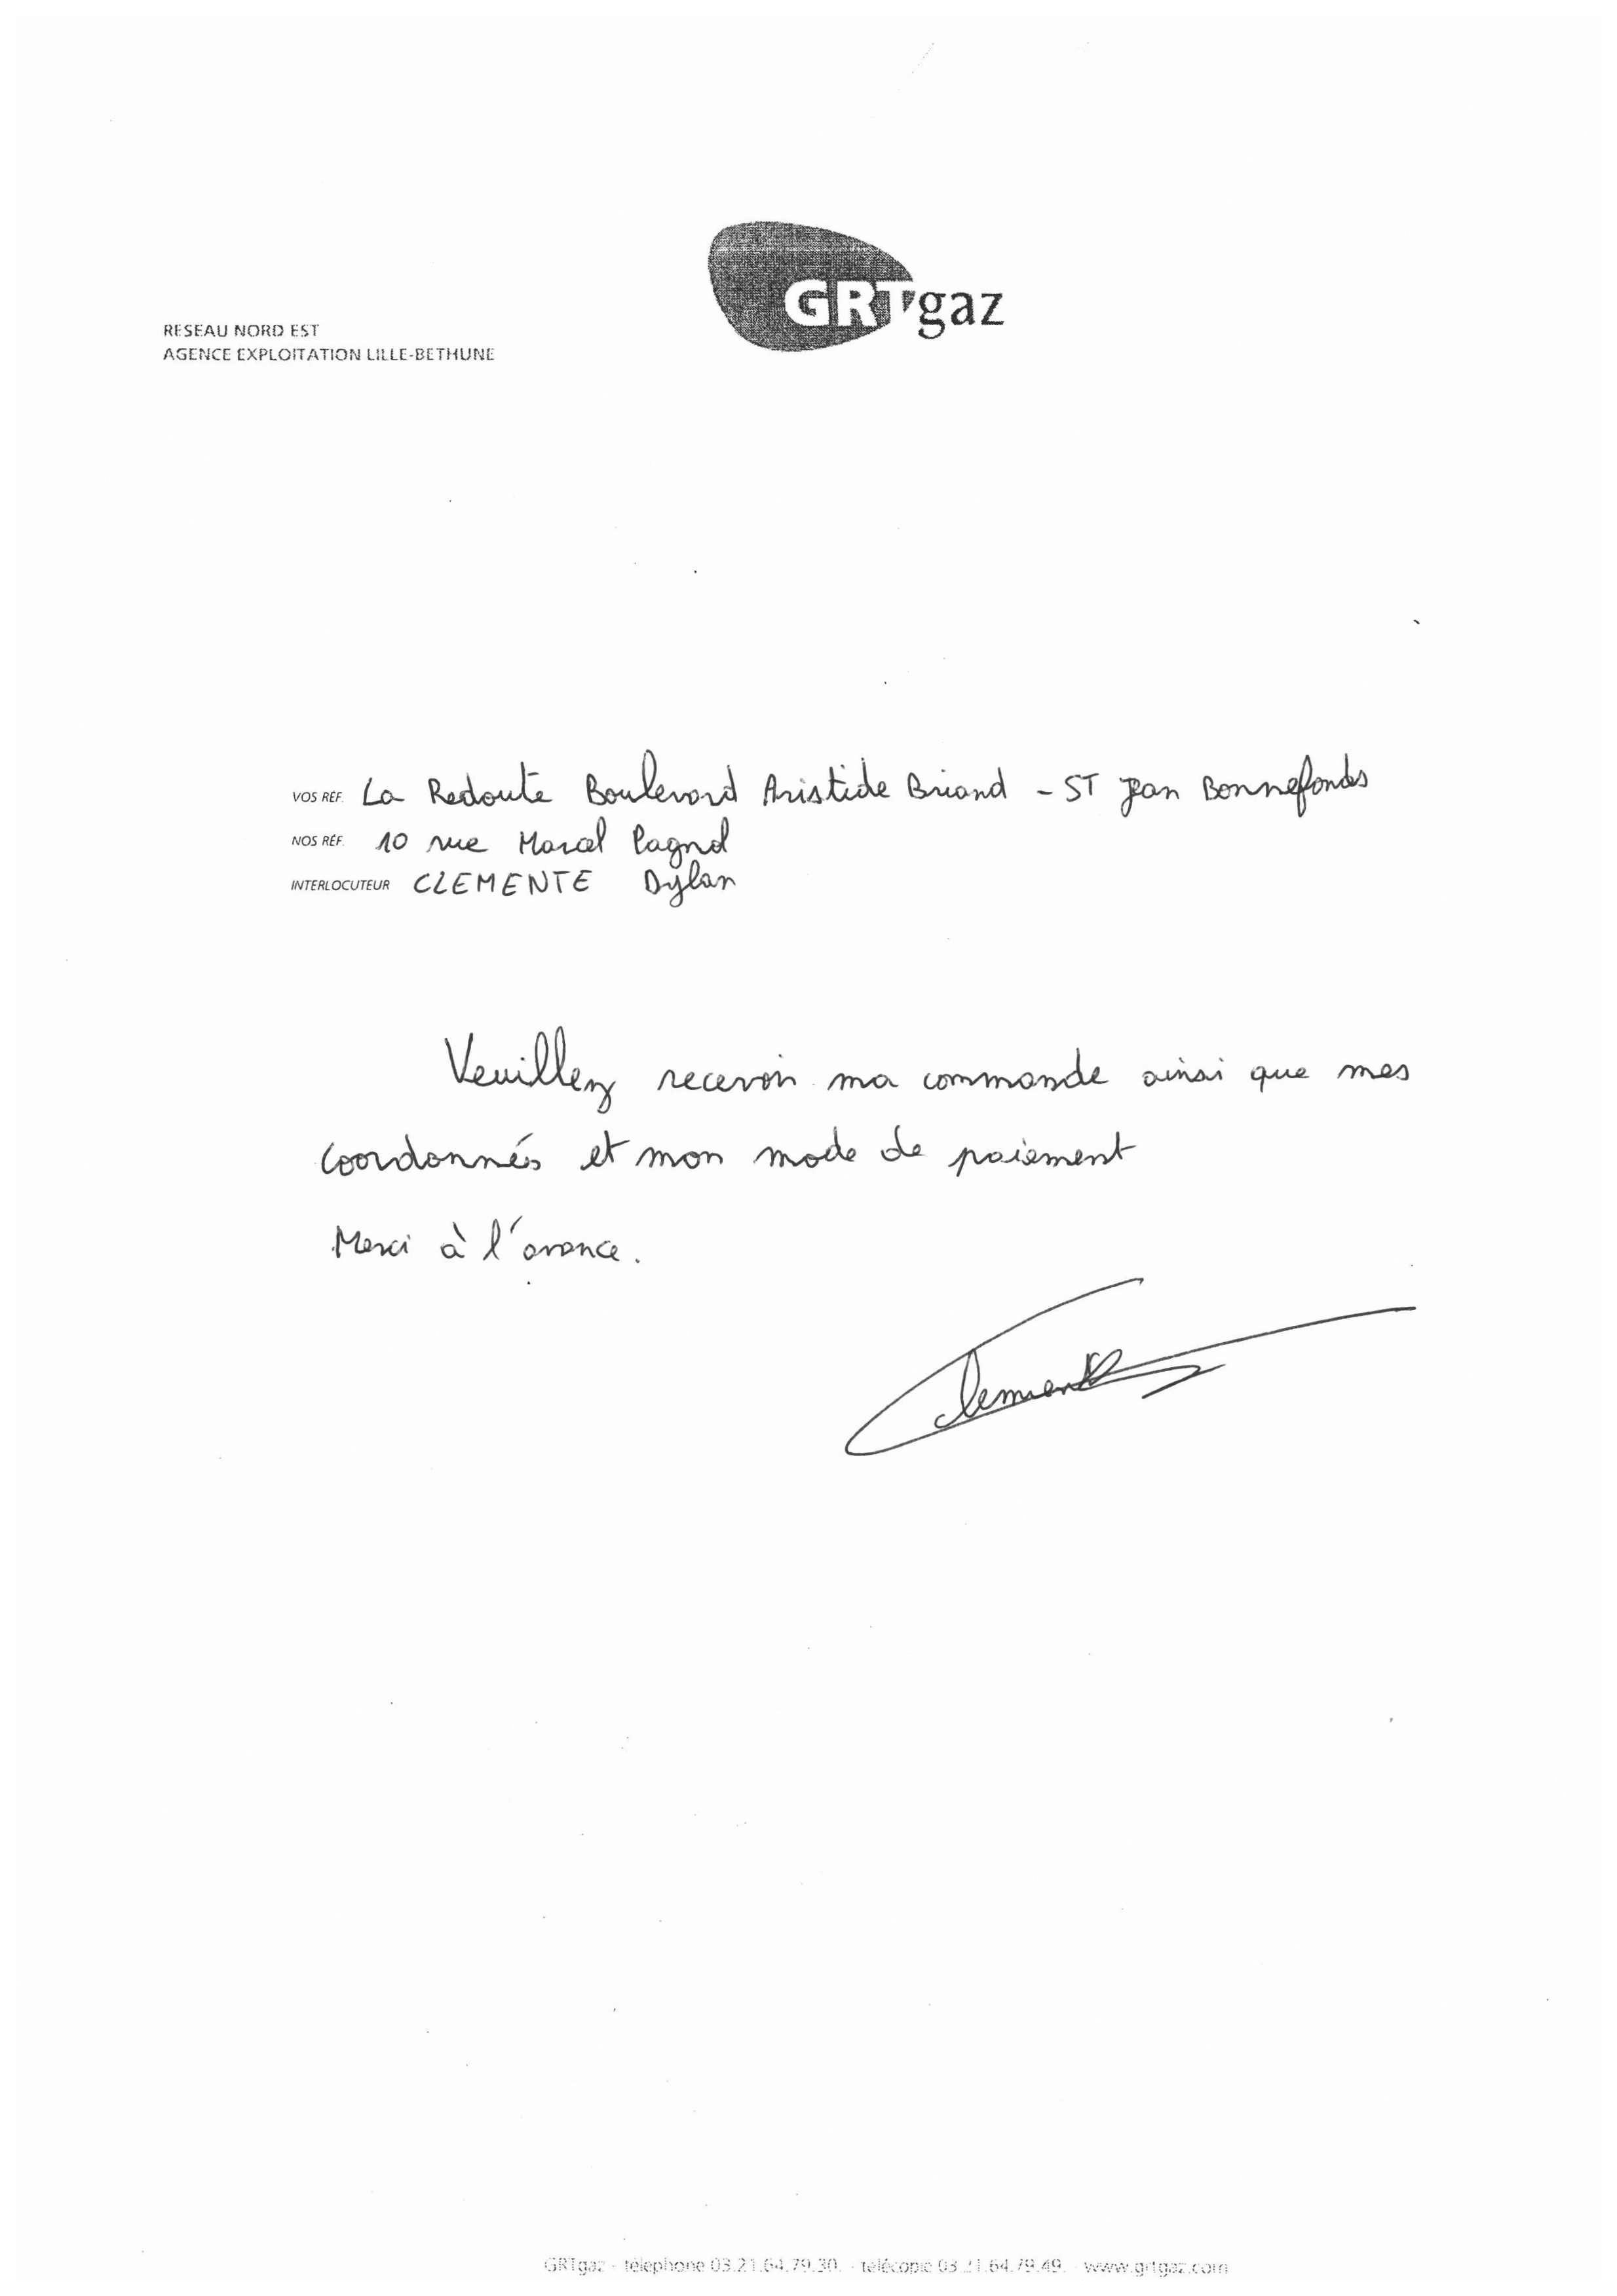 GRTgaz
RESEAU NORD EST
AGENCE EXPLOITATION LILLE-BETHUNE
VOS RÉF. La Redoute Boulevard Aristide Briand - ST Jean Bonnefonds
NOS RÉF. 10 rue Marcel Pagnol
INTERLOCUTEUR CLEMENTE Dylan
Veuillez recevoir ma commande ainsi que mes
coordonnés et mon mode de paiement
Merci à l'avance.
Clemente
GRTgaz - téléphone 03.21.64.79.30. - télécopie 03.21.64.79.49. - www.grtgaz.com